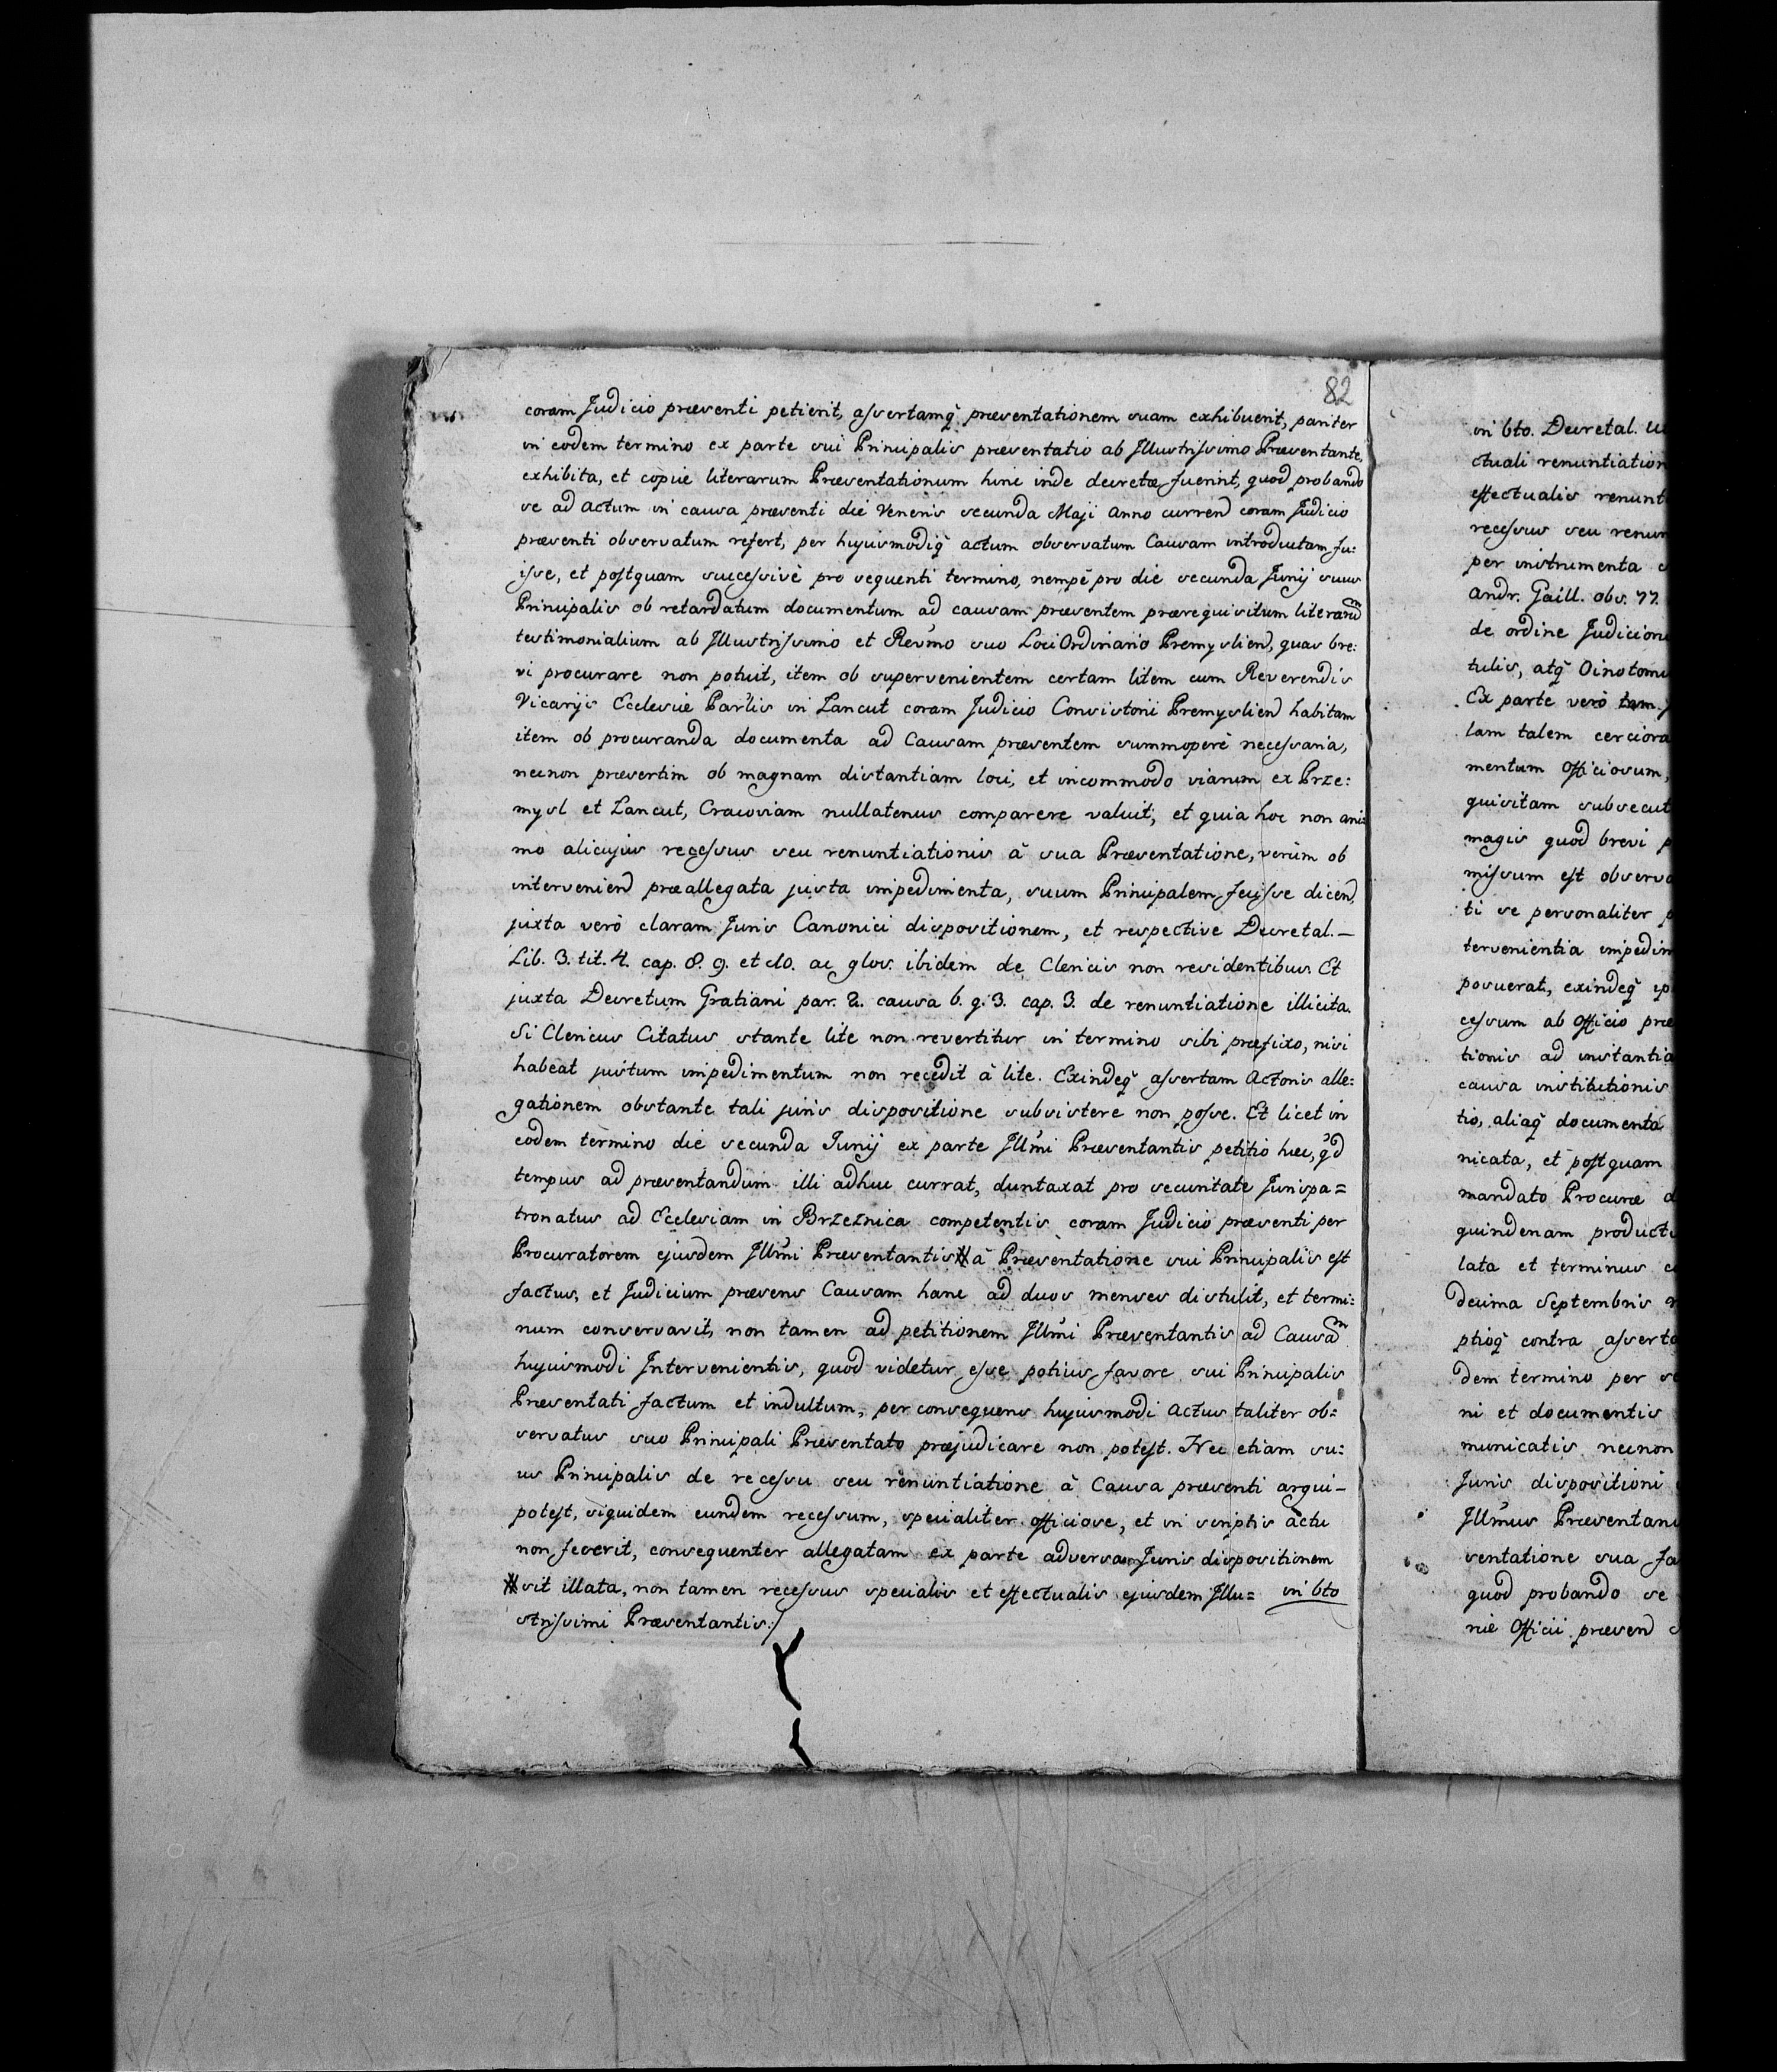 82
coram Judicio præsenti petierit, assertamq̃ præsentationem suam exhibuerit, pariter
in eodem termino ex parte sui Principalis præsentatio ab Illustrissimo Præsentante,
exhibita, et copiæ literarum Præsentationum hinc inde decretæ fuerint, quod probando
se ad Actum in causa præsenti die Veneris secunda Maji Anno currend coram Judicio
præsenti observatum refert, per hujusmodiq̃ actum observatum Causam introductam fu:
isse, et postquam successivè pro sequenti termino, nempè pro die secunda Junij suus
Principalis ob retardatum documentum ad causam præsentem prærequisitum literarum
testimonialium ab Illustrissimo et Revmo suo Loci Ordinario Premyslien, quas bre:
vi procurare non potuit, item ob supervenientem certam litem cum Reverendis
Vicarijs Ecclesiæ Parlis in Lancut coram Judicio Consistorii Premyslien habitam
item ob procuranda documenta ad Causam præsentem summoperè necessaria,
necnon præsertim ob magnam distantiam loci, et incommodo viarum ex Prze:
mysl et Lancut, Cracoviam nullatenus comparere valuit, et quia hoc non ani:
mo alicujus recessus seu renuntiationis à sua Præsentatione, verùm ob
intervenien præallegata justa impedimenta, suum Principalem fecisse dicen,
juxta verò claram Juris Canonici dispositionem, et respective Decretal.—
Lib. 3. tit. 4. cap. 8. 9. et clo. ac glos. ibidem de Clericis non residentibus. Et
juxta Decretum Gratiani par. 2. causa 6. q. 3. cap. 3. de renuntiatione illicita.
Si Clericus Citatus stante lite non revertitur in termino sibi præfixo, nisi
habeat justum impedimentum non recedit à lite. Exindeq̃ assertam Actoris alle:
gationem obstante tali juris dispositione subsistere non posse. Et licet in
eodem termino die secunda Junij ex parte Illmi Præsentantis petitio hæc, qd
tempus ad præsentandum illi adhuc currat, duntaxat pro securitate Jurispa=
tronatus ad Ecclesiam in Brzeznica competentis coram Judicio præsenti per
Procuratorem ejusdem Illmi Præsentantis # à Præsentatione sui Principalis est
factus, et Judicium præsens Causam hanc ad duos menses distulit, et termi:
num conservavit, non tamen ad petitionem Illmi Præsentantis ad Causam
hujusmodi Intervenientis, quod videtur esse potius favore sui Principalis
Præsentati factum et indultum, per consequens hujusmodi Actus taliter ob=
servatus suo Principali Præsentato præjudicare non potest. Nec etiam su:
us Principalis de recessu seu renuntiatione à Causa præsenti argui-
potest, siquidem eundem recessum, specialiter officiose, et in scriptis actu
non fecerit, consequenter allegatam ex parte adversa Juris dispositionem
# sit illata, non tamen recessus specialis et effectualis ejusdem Illu= in 6to
strissimi Præsentantis:/
in 6to. Decretal.
ctuali renuntiation
effectualis renunt
recessus seu renun
per instrumenta
Andr. Gaill. obs. 77.
de ordine Judicior
tulis, atq̃ Oinotom
Ex parte verò tam
lam talem cerciora
mentum officiosum,
quisitam subsecut
magis quod brevi
missum est observa
ti se personaliter
tervenientia impedim
posuerat, exindeq̃ ip
cessum ab officio præ
tionis ad instantia
causa institutionis
tio, aliaq̃ documenta
nicata, et postquam
mandato Procuræ
quindenam producti
lata et terminus
decima Septembris
ptioq̃ contra asserta
dem termino per
ni et documentis
municatis necnon
Juris dispositioni
Illmus Præsentan
sentatione sua fa
quod probando se
riæ Officii præsen